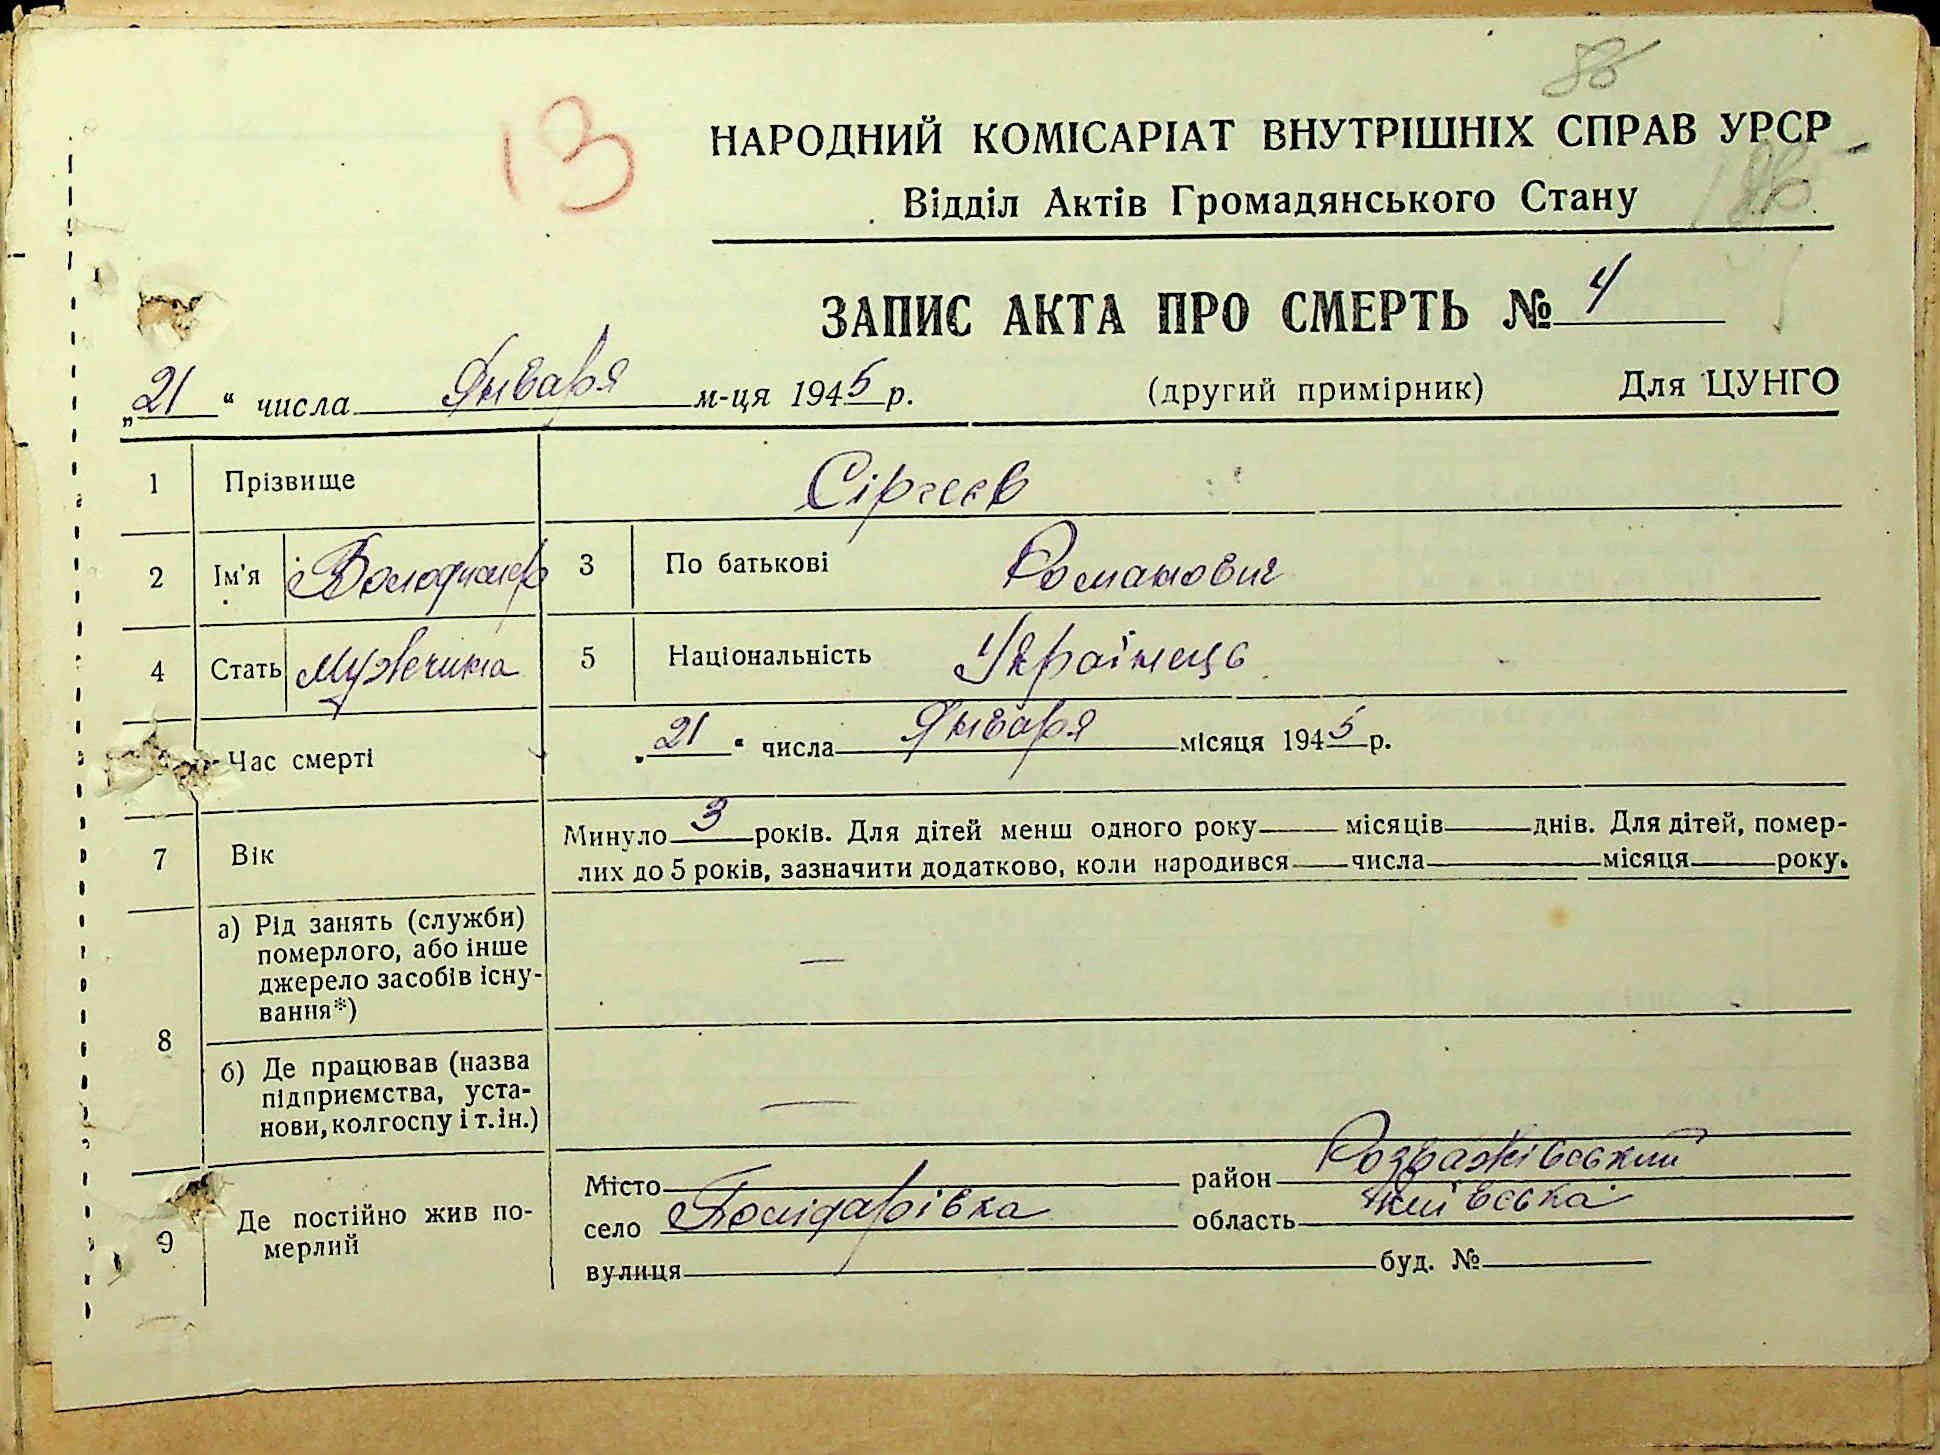 86
13
НАРОДНИЙ КОМІСАРІАТ ВНУТРІШНІХ СПРАВ УРСР
Відділ Актів Громадянського Стану
ЗАПИС АКТА ПРО СМЕРТЬ № 4
„21“ числа Января м-ця 1945 р. (другий примірник) Для ЦУНГО
1 Прізвище Сіргєєв
2 Ім'я Володимер 3 По батькові Романович
4 Стать мужчина 5 Національність Українець
Час смерті „21“ числа Января місяця 1945 р.
7 Вік Минуло 3 років. Для дітей менш одного року місяців днів. Для дітей, помер-
лих до 5 років, зазначити додатково, коли народився числа місяця року.
8 а) Рід занять (служби)
померлого, або інше
джерело засобів існу-
вання*) —
б) Де працював (назва
підприємства, уста-
нови, колгоспу і т. ін.) —
9 Де постійно жив по-
мерлий
Місто район Розважівський
село область Київська
вулиця буд. №